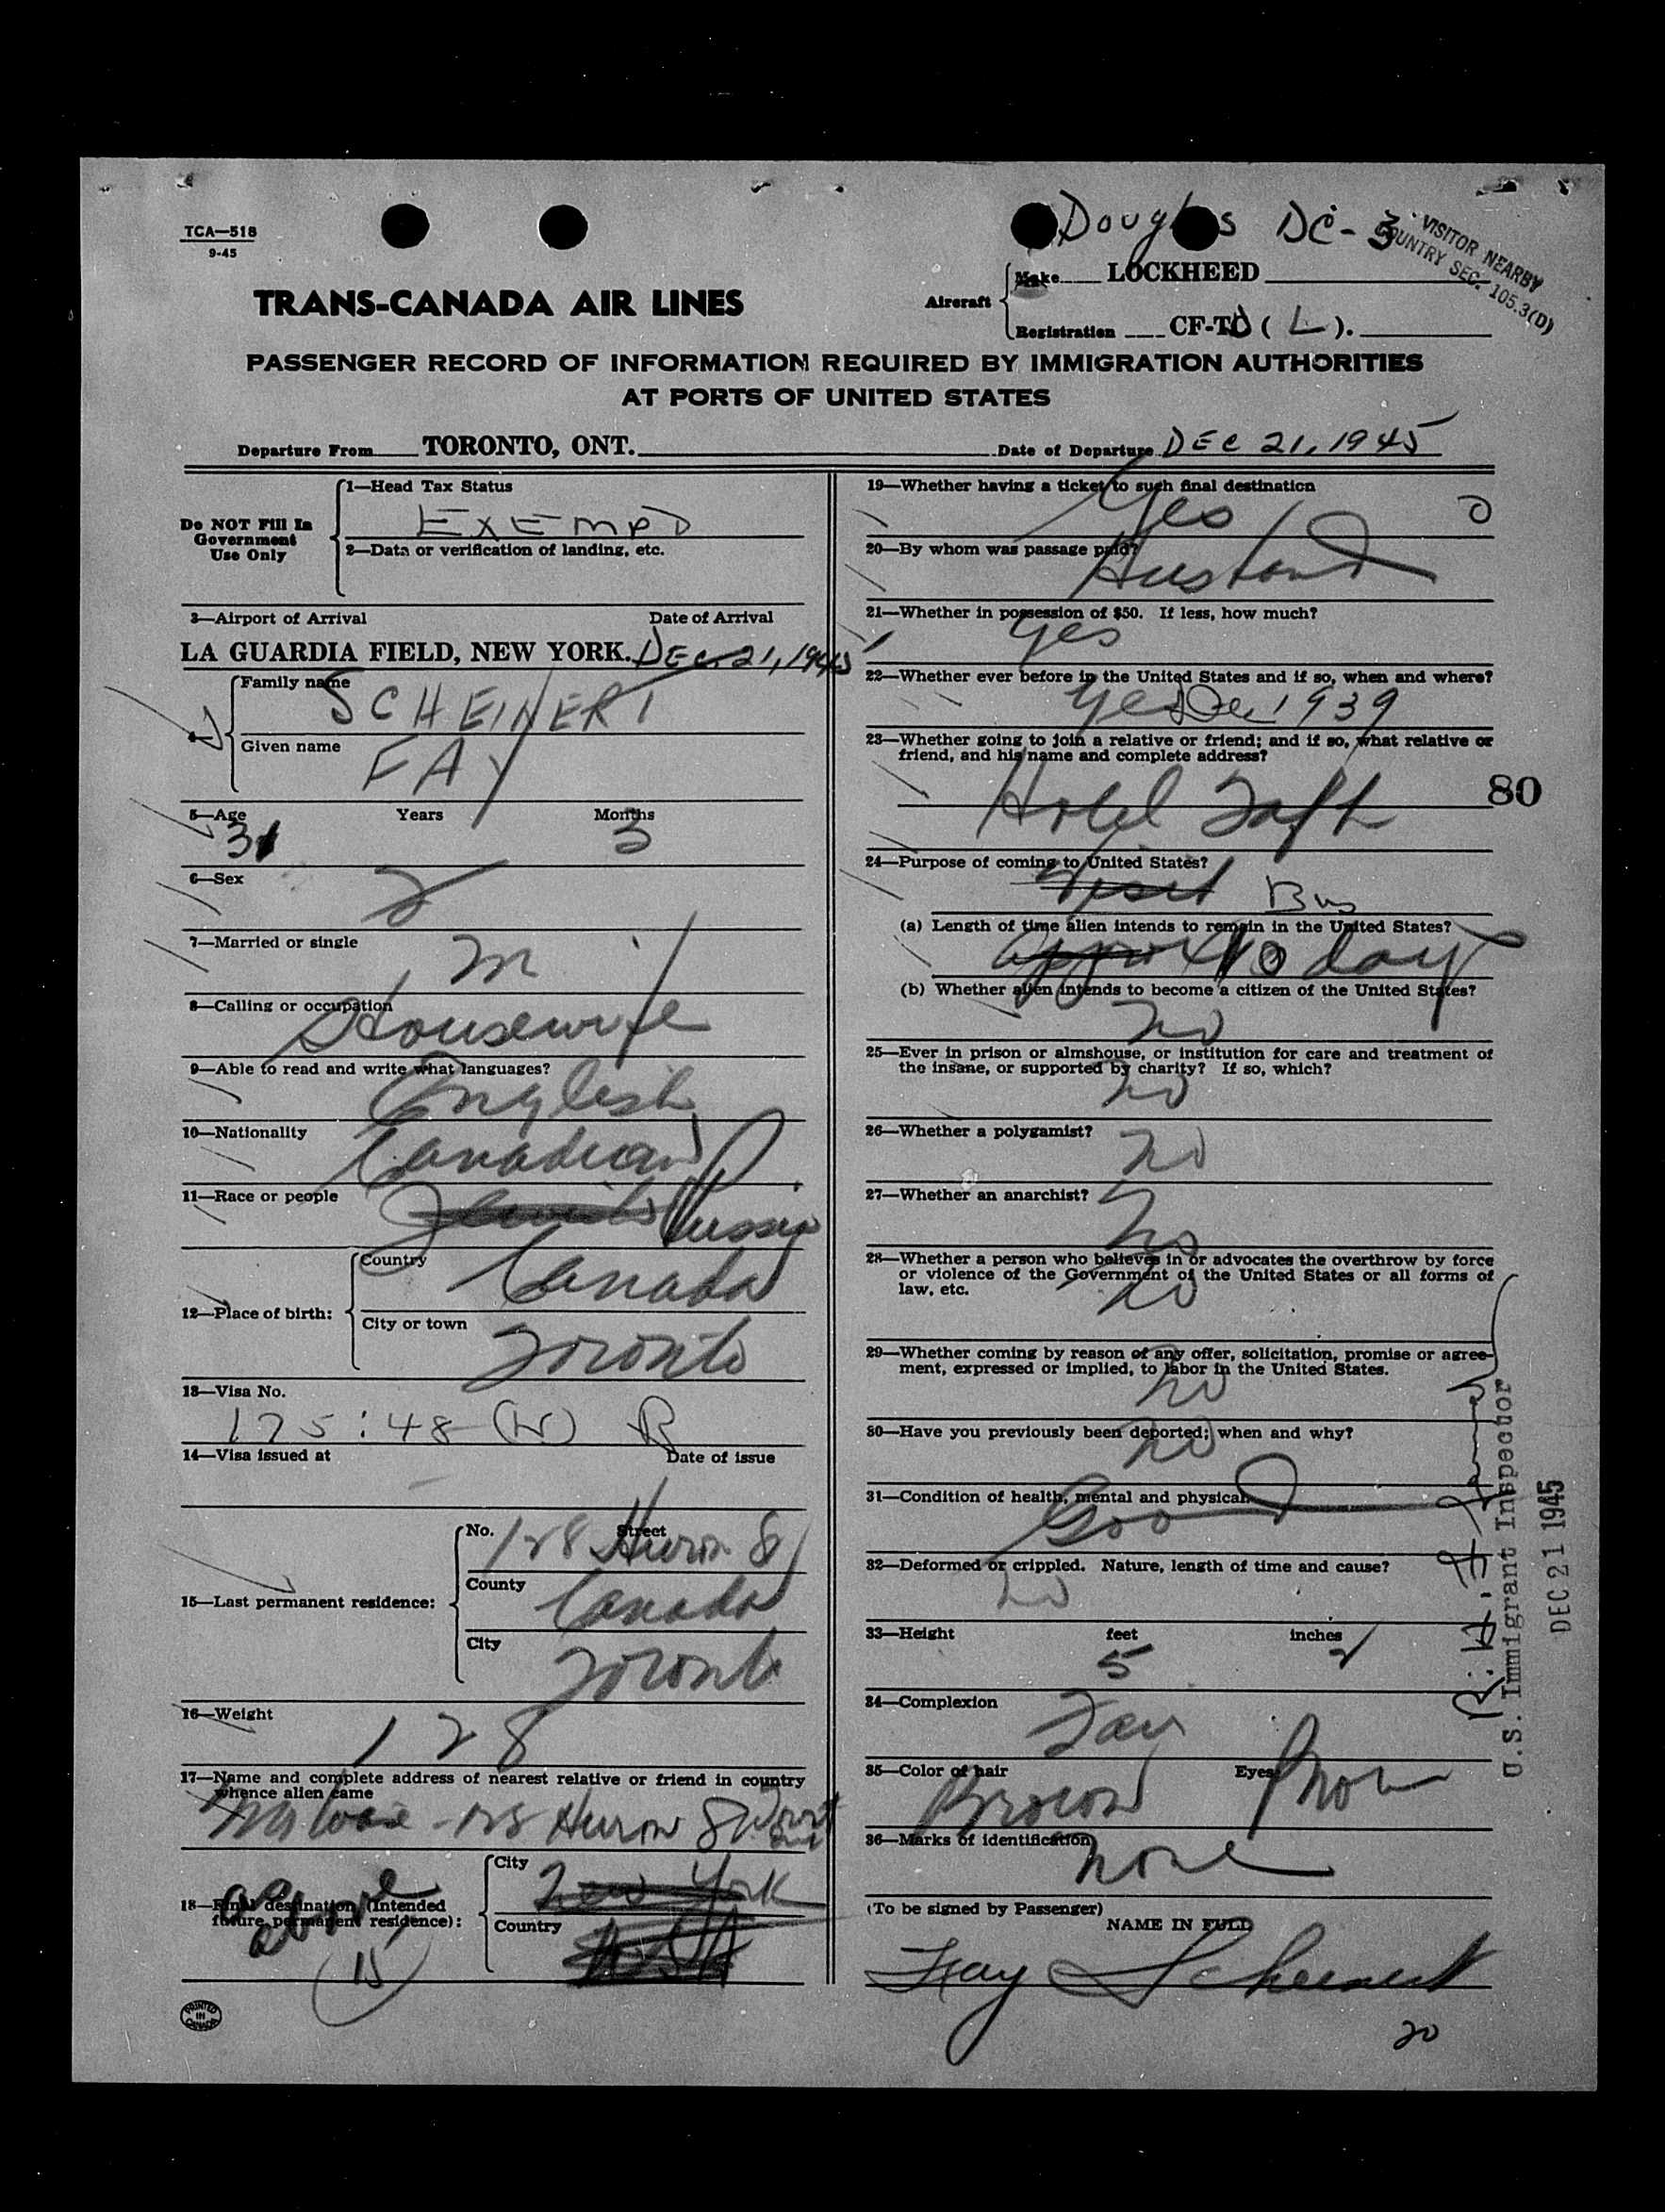 TCA—518
9-45
Douglas DC-3
VISITOR NEARBY
COUNTRY SEC. 105.3(D)
TRANS-CANADA AIR LINES
Aircraft
Make LOCKHEED
Registration CF-T ( L ).
PASSENGER RECORD OF INFORMATION REQUIRED BY IMMIGRATION AUTHORITIES
AT PORTS OF UNITED STATES
Departure From TORONTO, ONT. Date of Departure DEC 21, 1945
Do NOT Fill In
Government
Use Only
1—Head Tax Status
EXEMPD
2—Data or verification of landing, etc.
3—Airport of Arrival Date of Arrival
LA GUARDIA FIELD, NEW YORK. DEC. 21, 1945
4—
Family name
SCHEINERT
Given name
FAY
5—Age Years Months
31 3
6—Sex
7—Married or single
M
8—Calling or occupation
Housewife
9—Able to read and write what languages?
English
10—Nationality
Canadian
11—Race or people
Jewish Russia
12—Place of birth:
Country
Canada
City or town
Toronto
13—Visa No.
175:48 (W) R
14—Visa issued at Date of issue
15—Last permanent residence:
No. Street
128 Huron St
County
Canada
City
Toronto
16—Weight
128
17—Name and complete address of nearest relative or friend in country
whence alien came
128 Huron St Toront
18—Final destination (Intended
future permanent residence):
City
New York
Country
USA
15
PRINTED
IN
CANADA
19—Whether having a ticket to such final destination
Yes
20—By whom was passage paid?
Husband
21—Whether in possession of $50. If less, how much?
Yes
22—Whether ever before in the United States and if so, when and where?
Yes Dec 1939
23—Whether going to join a relative or friend; and if so, what relative or
friend, and his name and complete address?
Hotel Taft
80
24—Purpose of coming to United States?
Visit Bus
(a) Length of time alien intends to remain in the United States?
approx 10 days
(b) Whether alien intends to become a citizen of the United States?
no
25—Ever in prison or almshouse, or institution for care and treatment of
the insane, or supported by charity? If so, which?
no
26—Whether a polygamist?
no
27—Whether an anarchist?
No
28—Whether a person who believes in or advocates the overthrow by force
or violence of the Government of the United States or all forms of
law, etc.
no
29—Whether coming by reason of any offer, solicitation, promise or agree-
ment, expressed or implied, to labor in the United States.
no
30—Have you previously been deported; when and why?
no
31—Condition of health, mental and physical.
Good
32—Deformed or crippled. Nature, length of time and cause?
no
33—Height feet inches
5 2
34—Complexion
Fair
35—Color of hair Eyes
Brown Brown
36—Marks of identification
none
(To be signed by Passenger)
NAME IN FULL
Fay Scheinert
20
U.S. Immigrant Inspector
DEC 21 1945